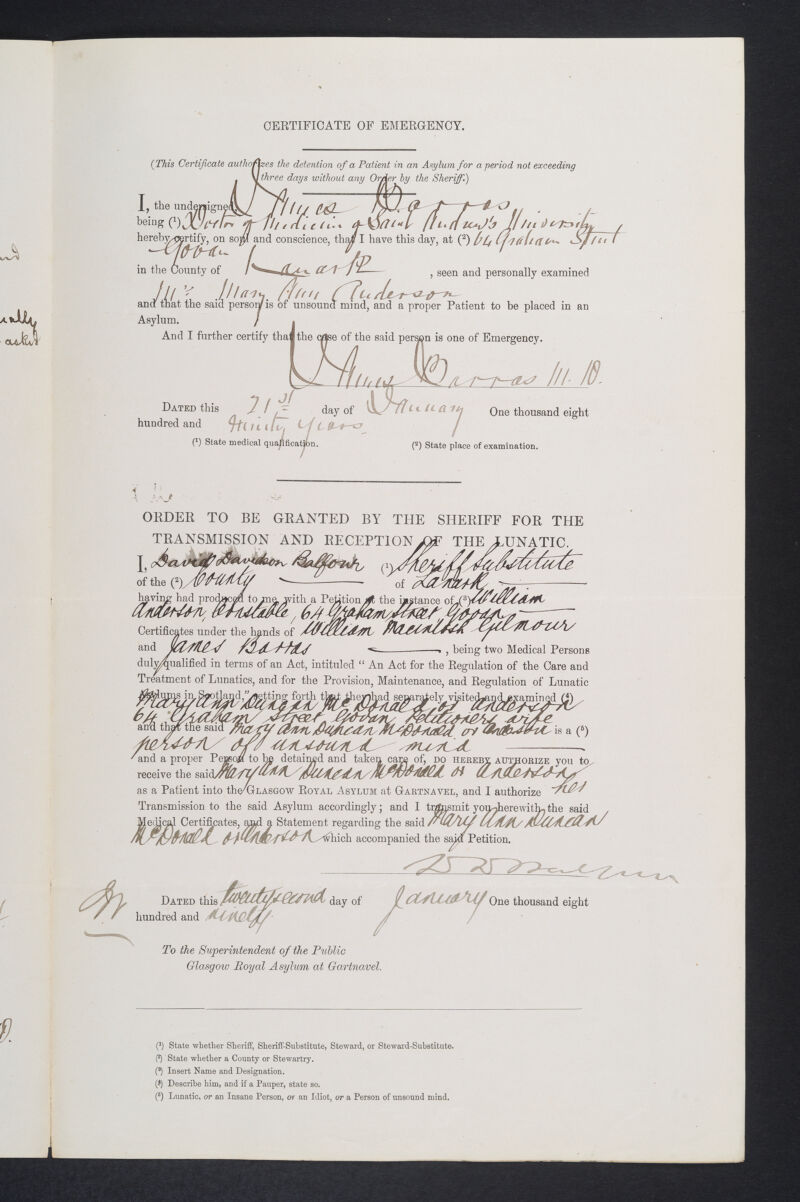 CERTIFICATE OF EMERGENCY.
(This Certificate authorizes the detention of a Patient in an Asylum for a period not exceeding
three days without any Order by the Sheriff.)
I, the undersigned James Barras
being (1) Doctor of Medicine of Saint Andrew's University
hereby certify, on soul and conscience, that I have this day, at (2) 64 Graham Street
Govan
in the County of Lanark, seen and personally examined
Mrs Mary Ann Anderson
and that the said person is of unsound mind, and a proper Patient to be placed in an
Asylum.
And I further certify that the case of the said person is one of Emergency.
James Barras M.D.
DATED this 21st day of January One thousand eight
hundred and Ninety years
(1) State medical qualification. (2) State place of examination.
ORDER TO BE GRANTED BY THE SHERIFF FOR THE
TRANSMISSION AND RECEPTION OF THE LUNATIC.
I, David Davidson Balfour (1) Sheriff Substitute
of the (2) County of Lanark
having had produced to me, with a Petition at the instance of (3) William
Anderson, Constable, 64 Graham Street Govan
Certificates under the hands of William Macintosh Gilmour
and James Barras, being two Medical Persons
duly qualified in terms of an Act, intituled "An Act for the Regulation of the Care and
Treatment of Lunatics, and for the Provision, Maintenance, and Regulation of Lunatic
Asylums in Scotland," setting forth that they had separately visited and examined (4)
Mary Ann Duncan McDonald or Anderson
64 Graham Street Govan Petitioners wife
and that the said Mary Ann Duncan McDonald or Anderson is a (5)
person of unsound mind
and a proper Person to be detained and taken care of, DO HEREBY AUTHORIZE you to
receive the said Mary Ann Duncan McDonald or Anderson
as a Patient into the GLASGOW ROYAL ASYLUM at GARTNAVEL, and I authorize her
Transmission to the said Asylum accordingly; and I transmit you herewith the said
Medical Certificates, and a Statement regarding the said Mary Ann Duncan
McDonald or Anderson which accompanied the said Petition.
D D Balfour
DATED this twenty second day of January One thousand eight
hundred and ninety
To the Superintendent of the Public
Glasgow Royal Asylum at Gartnavel.
(1) State whether Sheriff, Sheriff-Substitute, Steward, or Steward-Substitute.
(2) State whether a County or Stewartry.
(3) Insert Name and Designation.
(4) Describe him, and if a Pauper, state so.
(5) Lunatic, or an Insane Person, or an Idiot, or a Person of unsound mind.